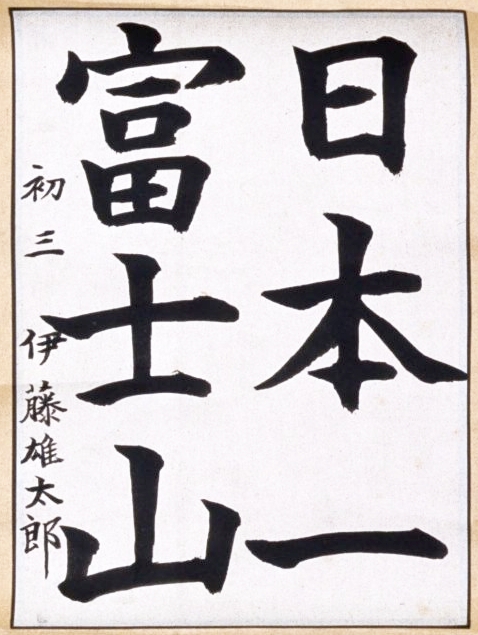 日本一
富士山
初三 伊藤雄太郎